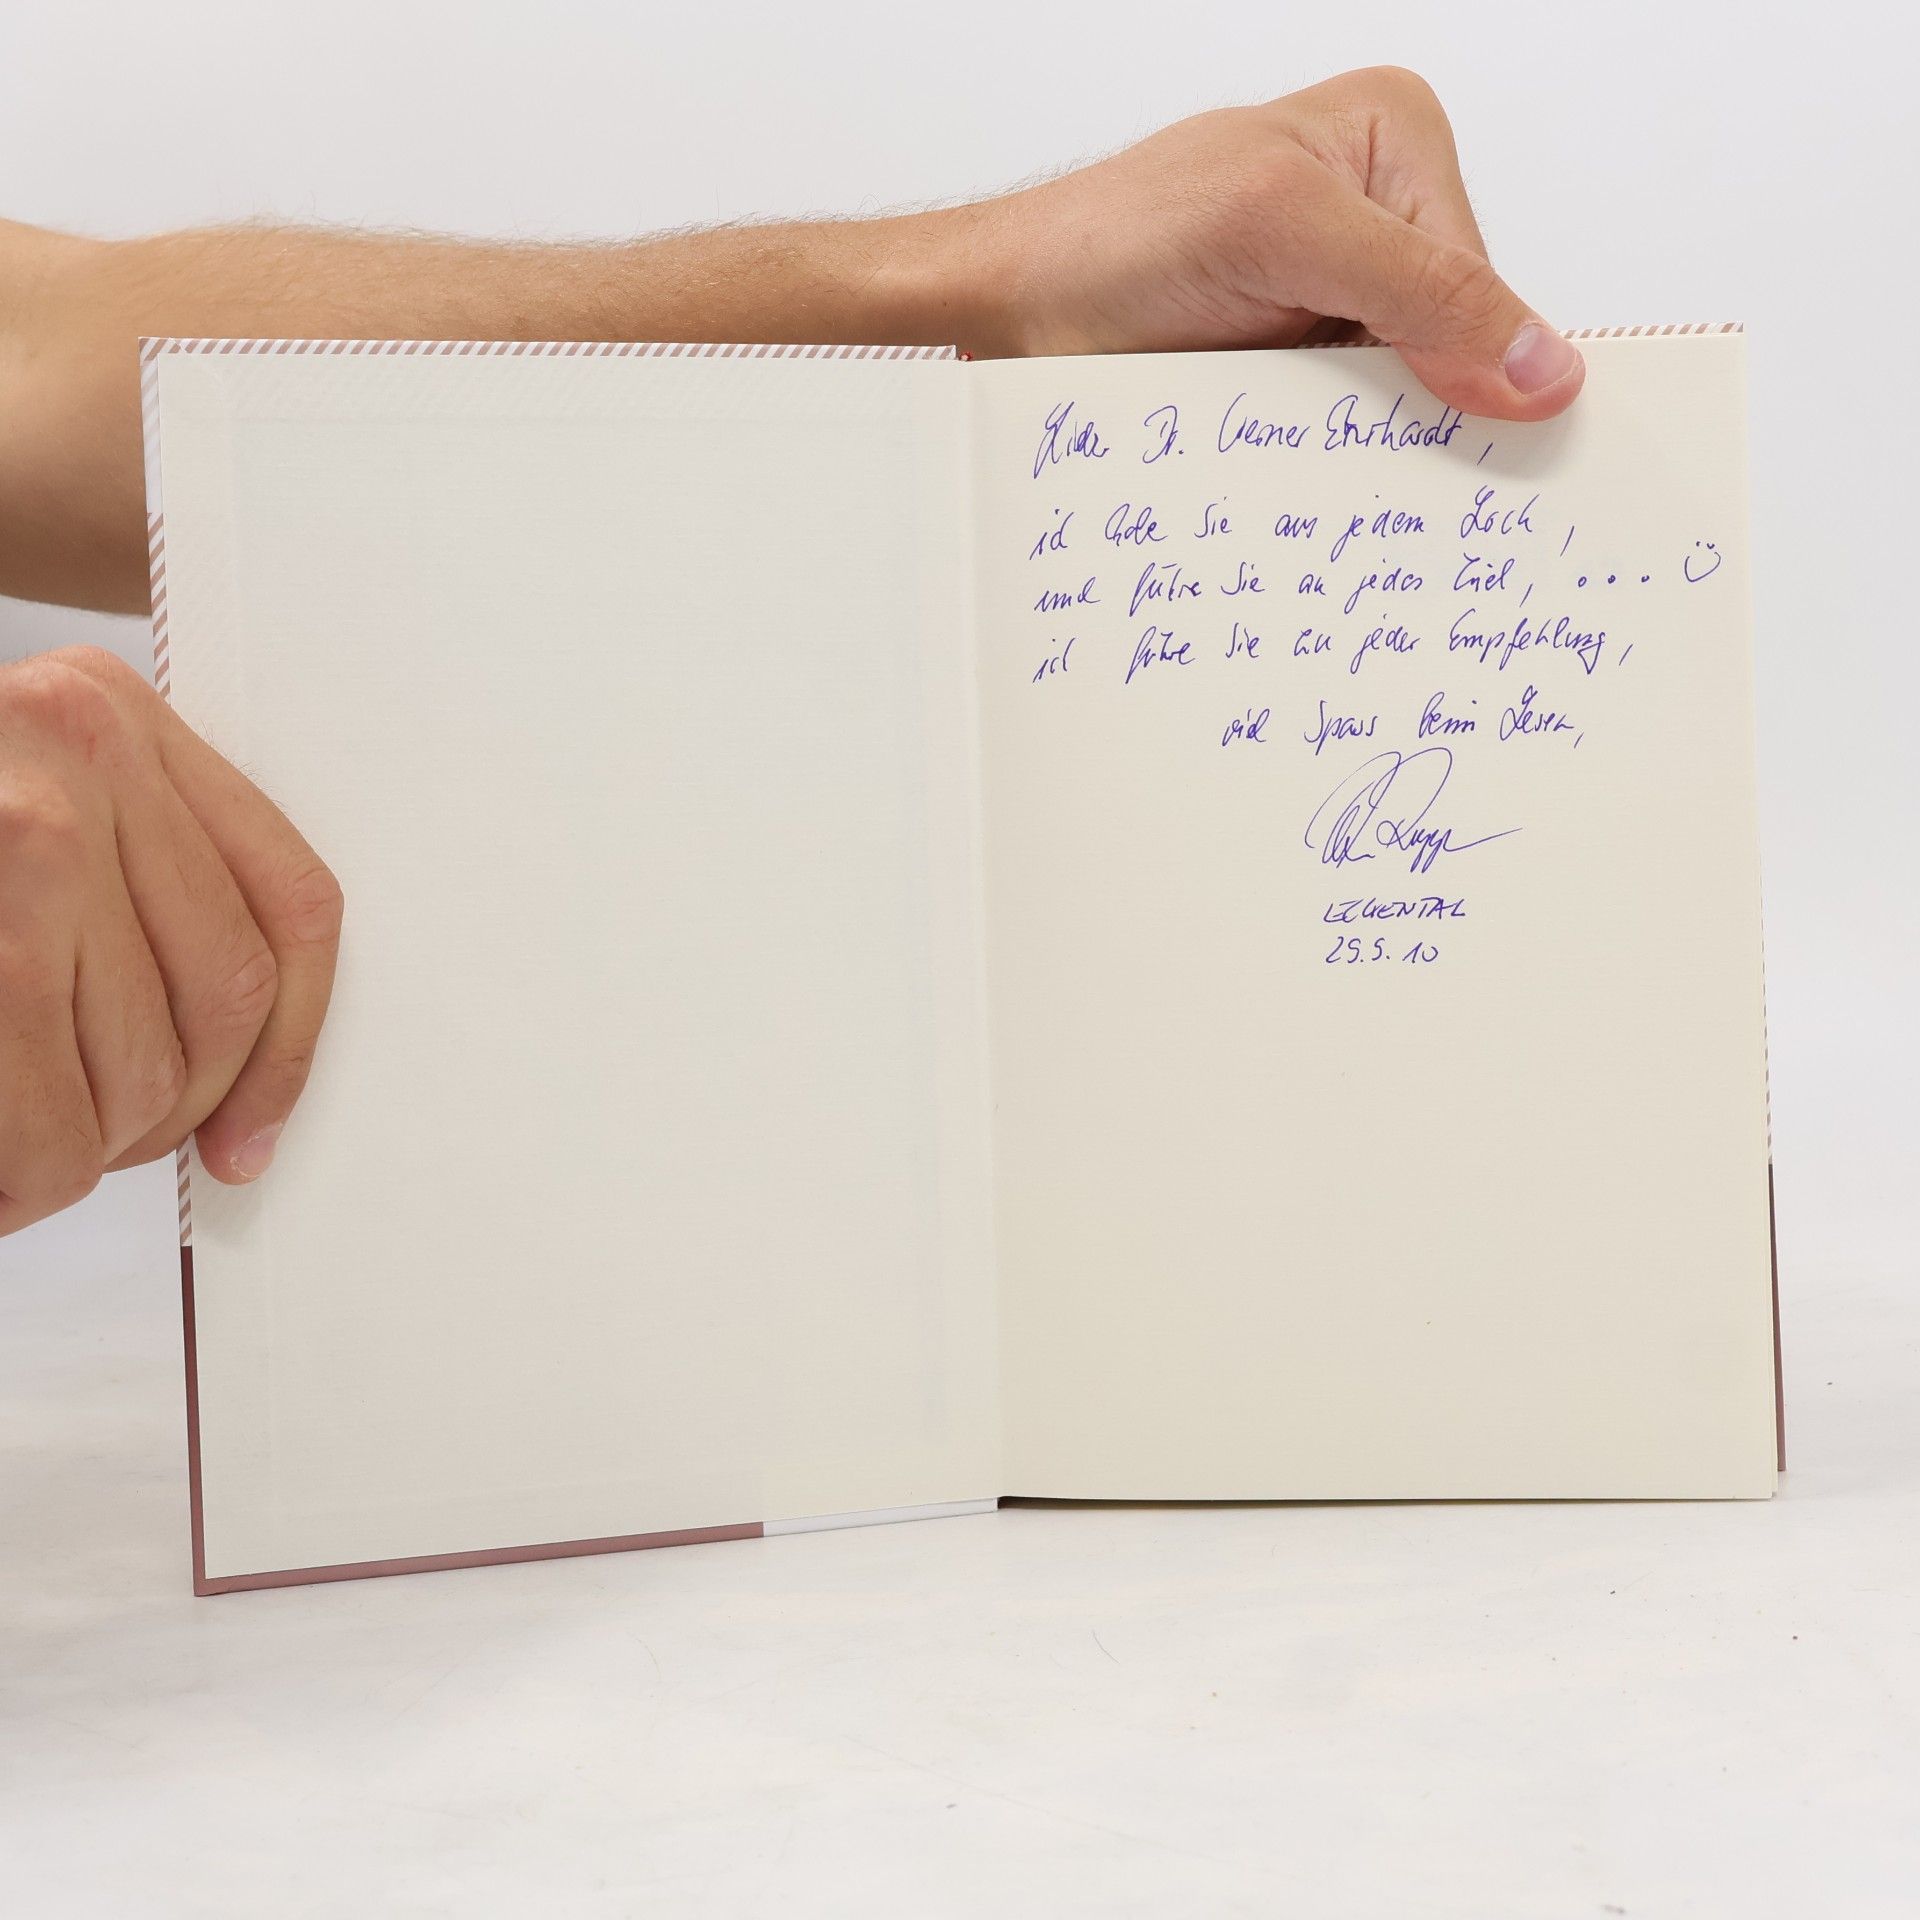 Lieber Dr. Werner Ehrhardt,
ich hole Sie aus jedem Loch,
und führe Sie an jedes Ziel, ...
ich führe Sie zu jeder Empfehlung,
viel Spass beim Lesen,
Rupp
ECKENTAL
29.9.10